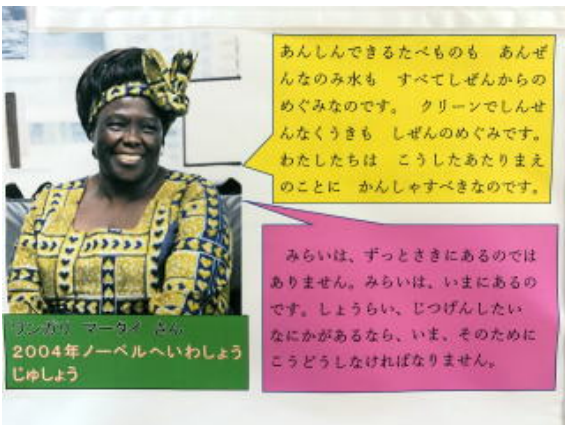 あんしんできるたべものも　あんぜ
んなのみ水も　すべてしぜんからの
めぐみなのです。　クリーンでしんせ
んなくうきも　しぜんのめぐみです。
わたしたちは　こうしたあたりまえ
のことに　かんしゃすべきなのです。
みらいは、ずっとさきにあるのでは
ありません。みらいは、いまにあるの
です。しょうらい、じつげんしたい
なにかがあるなら、いま、そのために
こうどうしなければなりません。
ワンガリ　マータイ　さん
2004年ノーベルへいわしょう
じゅしょう